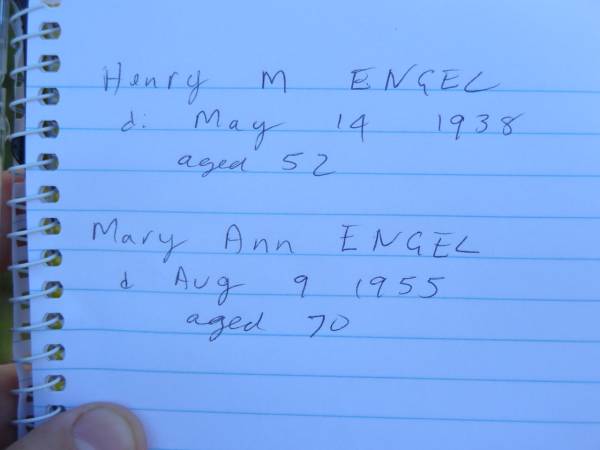 Henry M ENGEL
d: May 14 1938
aged 52
Mary Ann ENGEL
d Aug 9 1955
aged 70